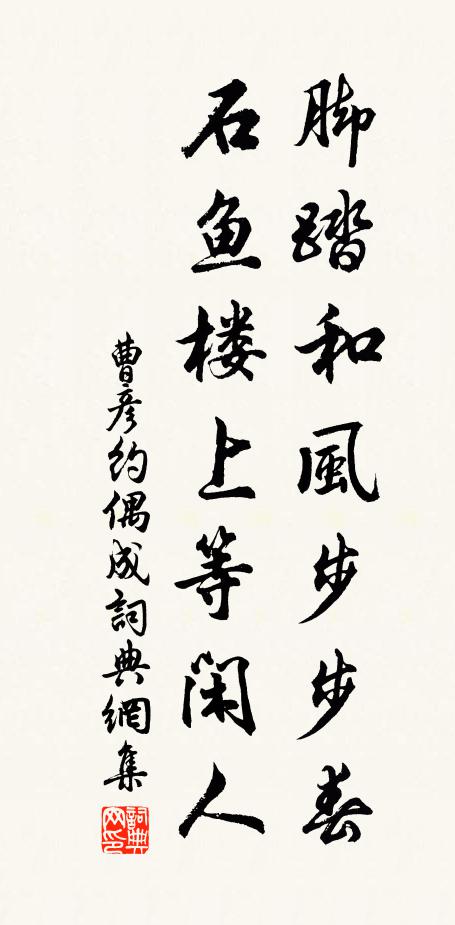 脚踏和風步步春
石鱼楼上等闲人
曹彦约偶成詞典網集
詞典网印